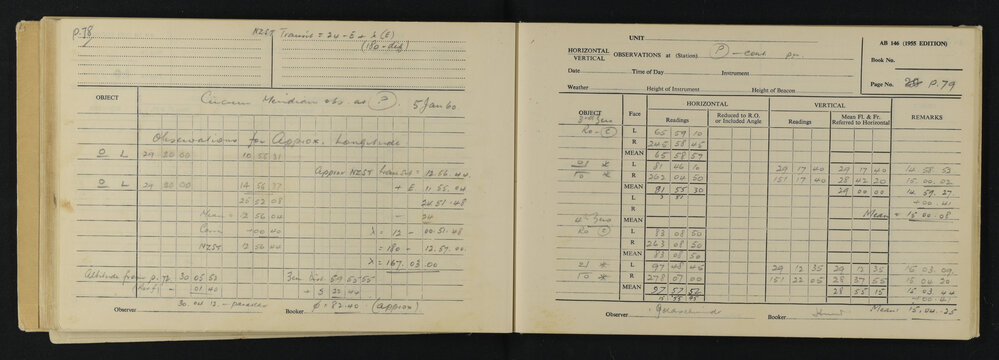 P.78
NZST Transit = 24 - E + λ (E)
(180 - dif)
OBJECT
Circum Meridian obs. at P. 5 Jan 60.
Observations for Approx. Longitude
O L 29 20 00 10 55 31
Approx NZST transit = 12.56.44
O L 29 20 00 14 56 37 + E 11 55.04
25 52 08 24.51.48
Mean = 12 56 04 - 24
Corrn +00 40 λ = 12 - 00.51.48
NZST 12 56 44 = 180 - 12.57.00.
λ = 167.03.00
Altitude from p. 72 30 05 53 Zen Dist 59 55 55
(Ref) - 01 40 + S 22 44
30 04 13 - parallax φ = 82.40 (approx)
Observer Booker
UNIT
AB 146 (1955 EDITION)
HORIZONTAL
VERTICAL OBSERVATIONS at (Station) P - cont. pm
Book No.
Date Time of Day Instrument
Page No. P.79
Weather Height of Instrument Height of Beacon
OBJECT Face HORIZONTAL VERTICAL REMARKS
Readings Reduced to R.O. or Included Angle Readings Mean Fl. & Fr. Referred to Horizontal
3rd Zero
RO - C L 65 59 10
R 245 58 45
MEAN 65 58 57
L 81 46 10 29 17 40 29 17 40 14 58 52
R 262 04 50 151 17 40 28 42 20 15 00 02
MEAN 81 55 30 29 00 00 14 59 27
L +00 41
R Mean = 15 00 08
4th Zero MEAN
RO C L 83 08 50
R 263 08 50
MEAN 83 08 50
L 97 48 45 29 12 35 29 12 35 15 03 09
R 278 07 00 151 22 05 28 37 55 15 04 20
MEAN 97 57 52 28 55 15 15 03 44
+00 41
Observer Booker Hunt Mean 15.04.25